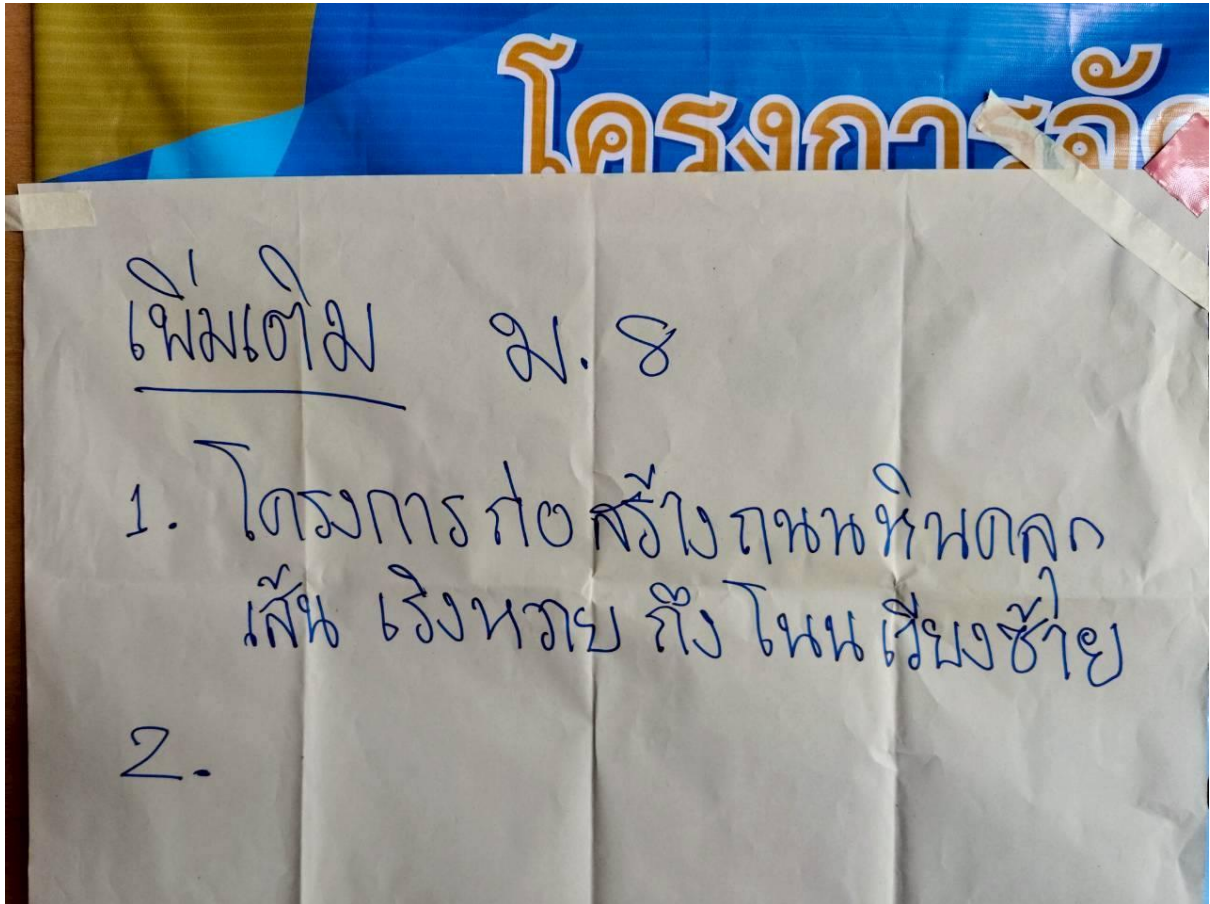 โครงการจัด
เพิ่มเติม ม. 8
1. โครงการ ก่อสร้างถนนหินคลุก
เส้น เริงหวาย ถึง โนนเวียงซ้าย
2.